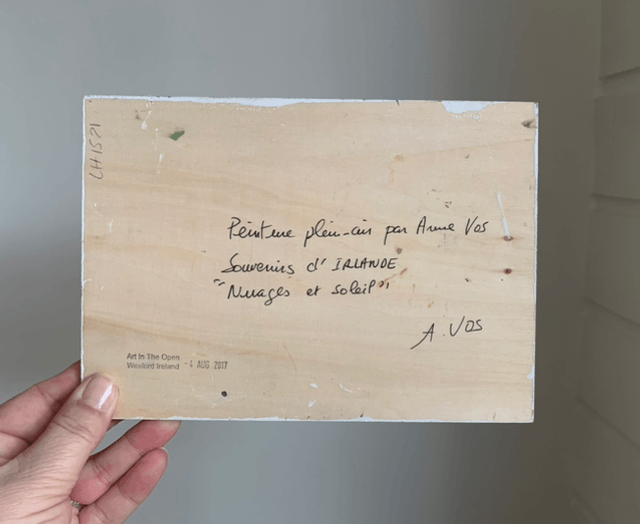 LH1571
Peinture plein-air par Anne Vos
Souvenirs d'IRLANDE
"Nuages et soleil"
A. Vos
Art In The Open
Wexford Ireland -4 AUG 2017